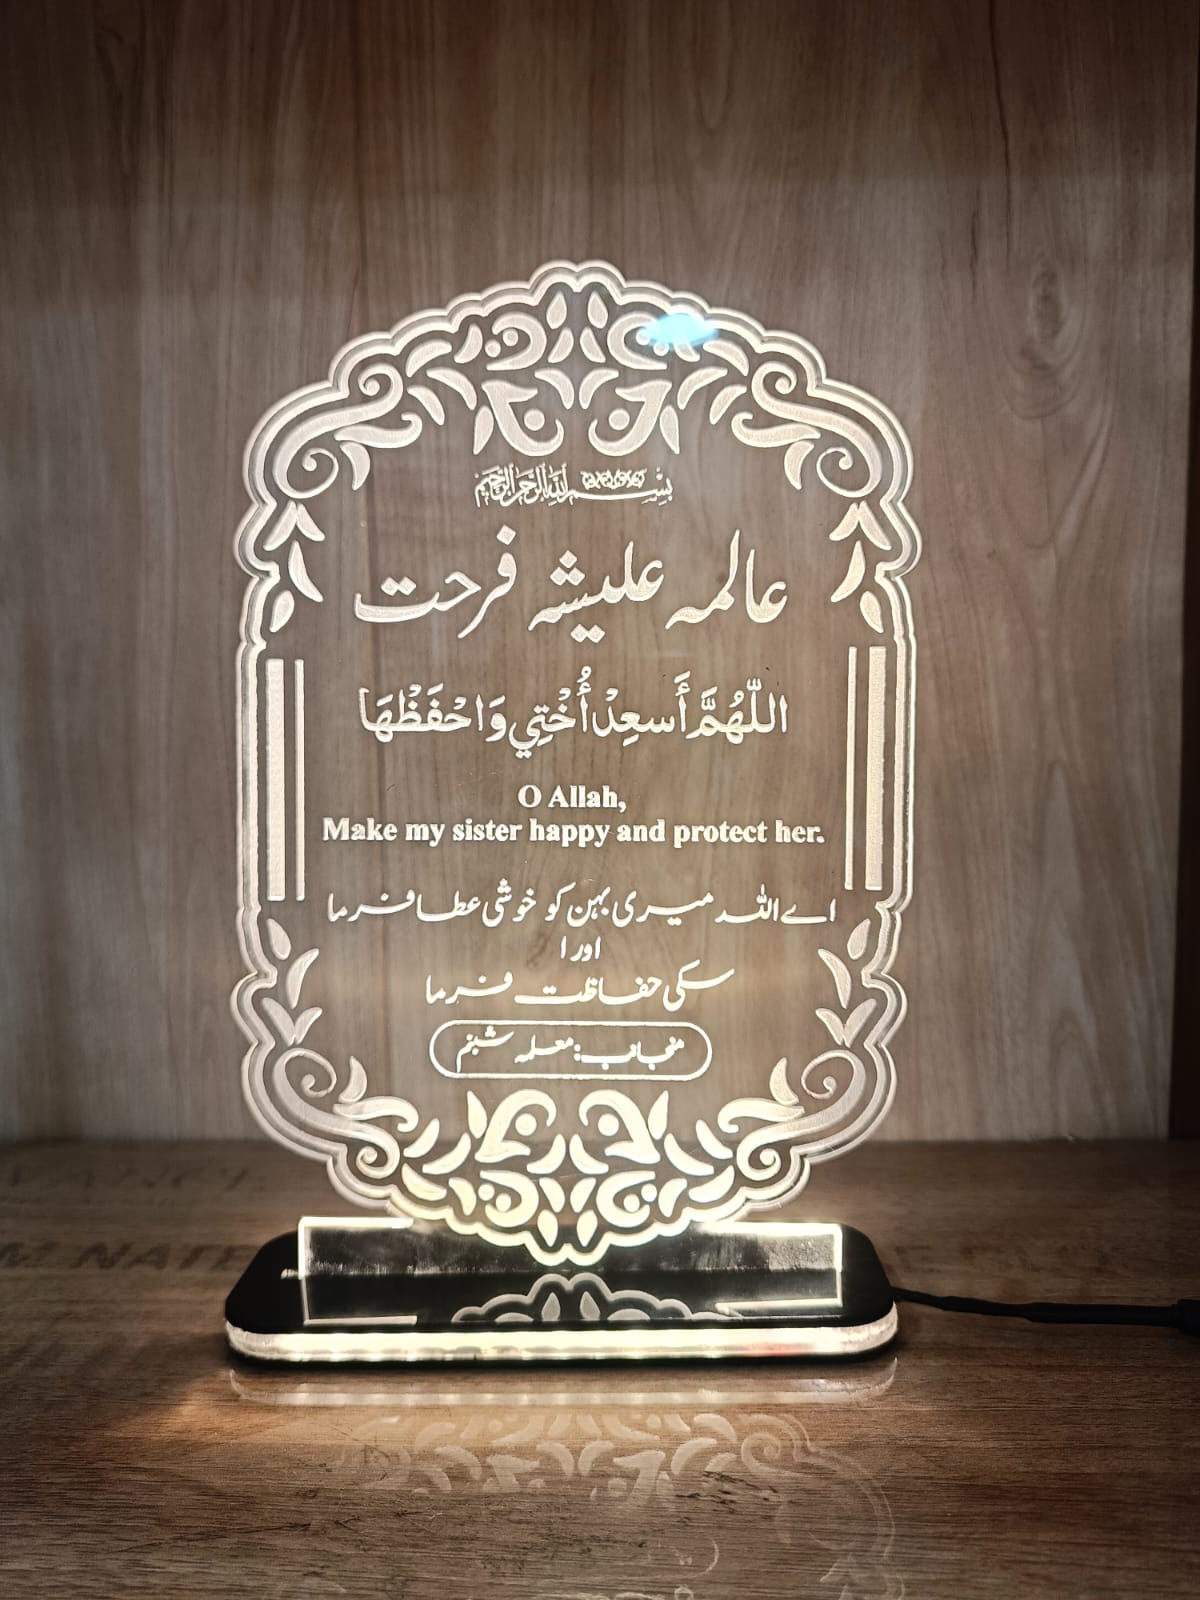 بسم الله الرحمن الرحيم
عالمہ علیشہ فرحت
اللّهُمَّ أَسعِدْ أُخْتِي وَاحْفَظْهَا
O Allah,
Make my sister happy and protect her.
اے اللہ میری بہن کو خوشی عطا فرما
اور ا
سکی حفاظت فرما
منجانب: معلمہ شبنم